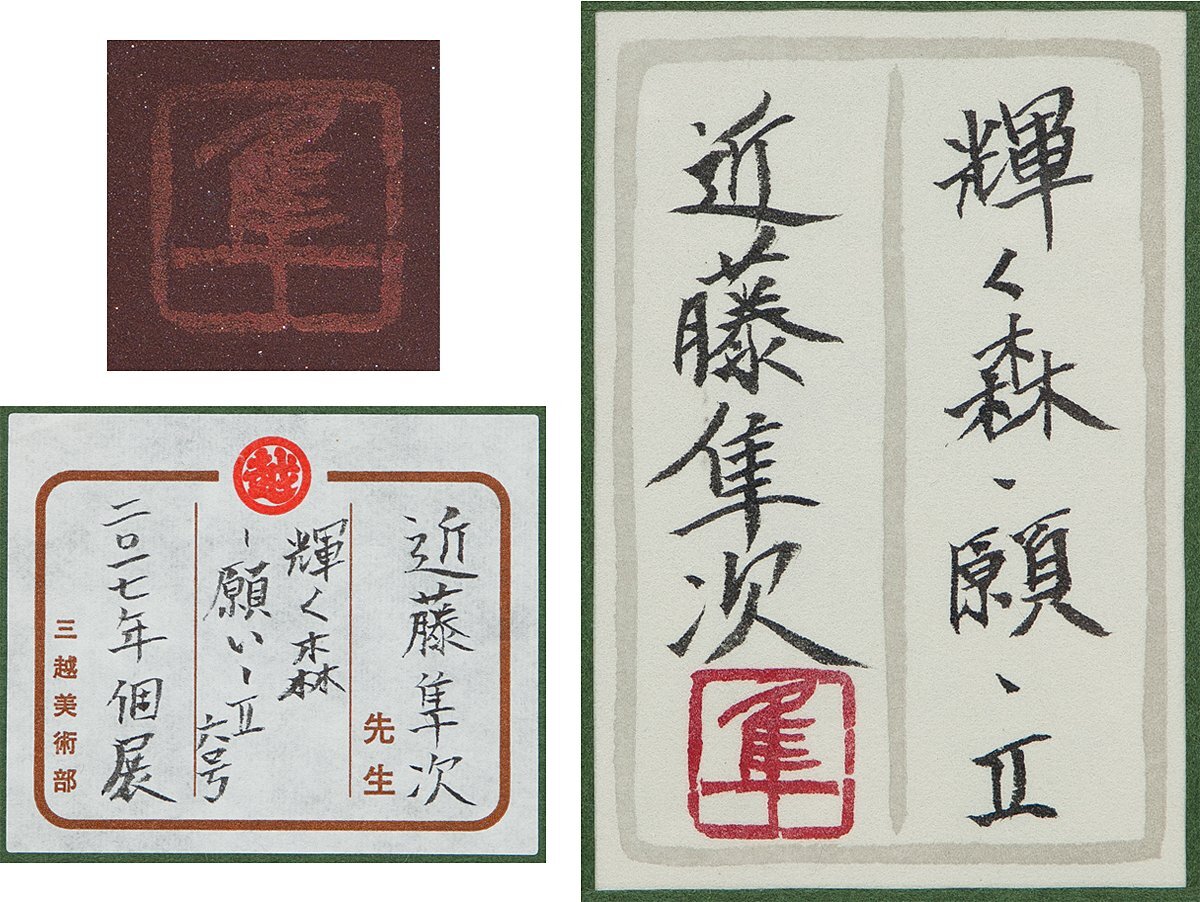 隼
越
近藤隼次
先生
輝く森
-願い-Ⅱ
六号
二〇一七年 個展
三越美術部
輝く森-願-Ⅱ
近藤隼次
隼